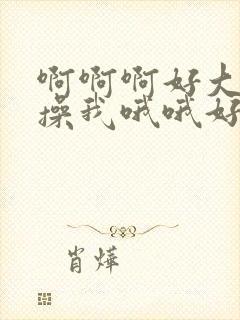 啊啊啊好大
操我哦哦好
肖烨